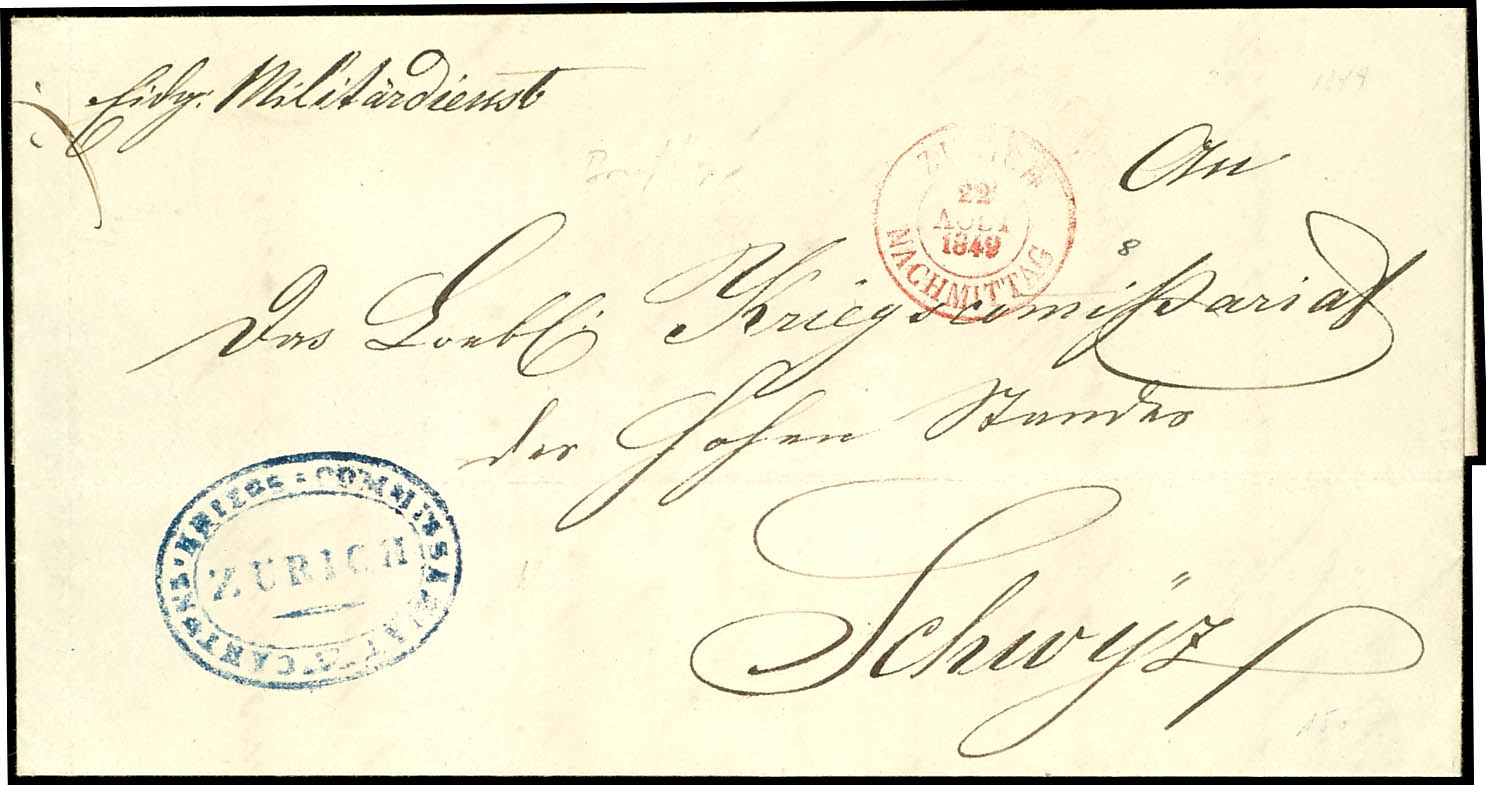 Eidg: Militärdienst
1849
ZÜRICH
22
AOUT
1849
NACHMITTAG
An
8
Das Loebl: Kriegscomissariat
des hohen Standes
Schwÿz
CANTONS-KRIEGS-COMMISSARIAT
ZÜRICH
150